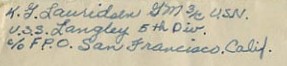 K. F. Lauridsen GM 3/c USN.
U.S.S. Langley 5th Div.
c/o F.P.O. San Francisco, Calif.